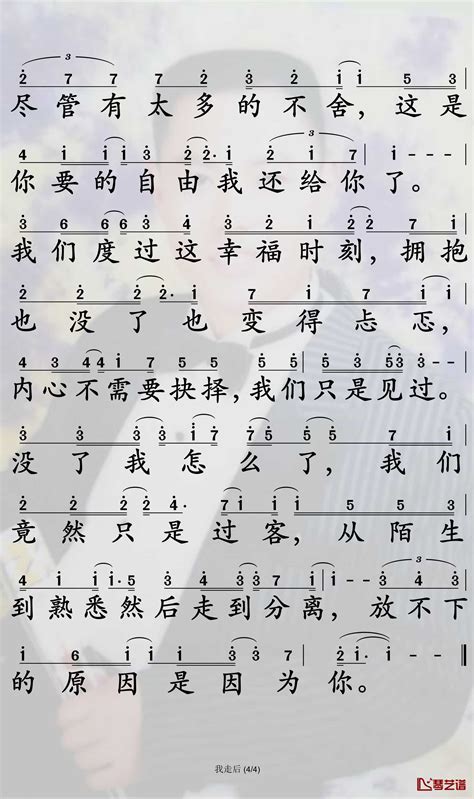 3
2 7 7 7 2 3 2 i i 5 3
尽管有太多的不舍,这是
3
4 i i i 3 2 2· i 2 i 7 | i - - - |
你要的自由我还给你了。
3 6 6 6 3 | 7 5 5 3 2 i 2 2 7 i |
我们度过这幸福时刻,拥抱
也没了也变得忐忑,
4 3 4 4 i 7 5 5 5 5 | 5 3 5 5 3 3 2 - |
内心不需要抉择,我们只是见过。
没了我怎么了,我们
竟然只是过客,从陌生
3
到熟悉然后走到分离,放不下
i 6 i i i 3 3 7 | 2 i - - ‖
的原因是因为你。
我走后 (4/4)
琴艺谱